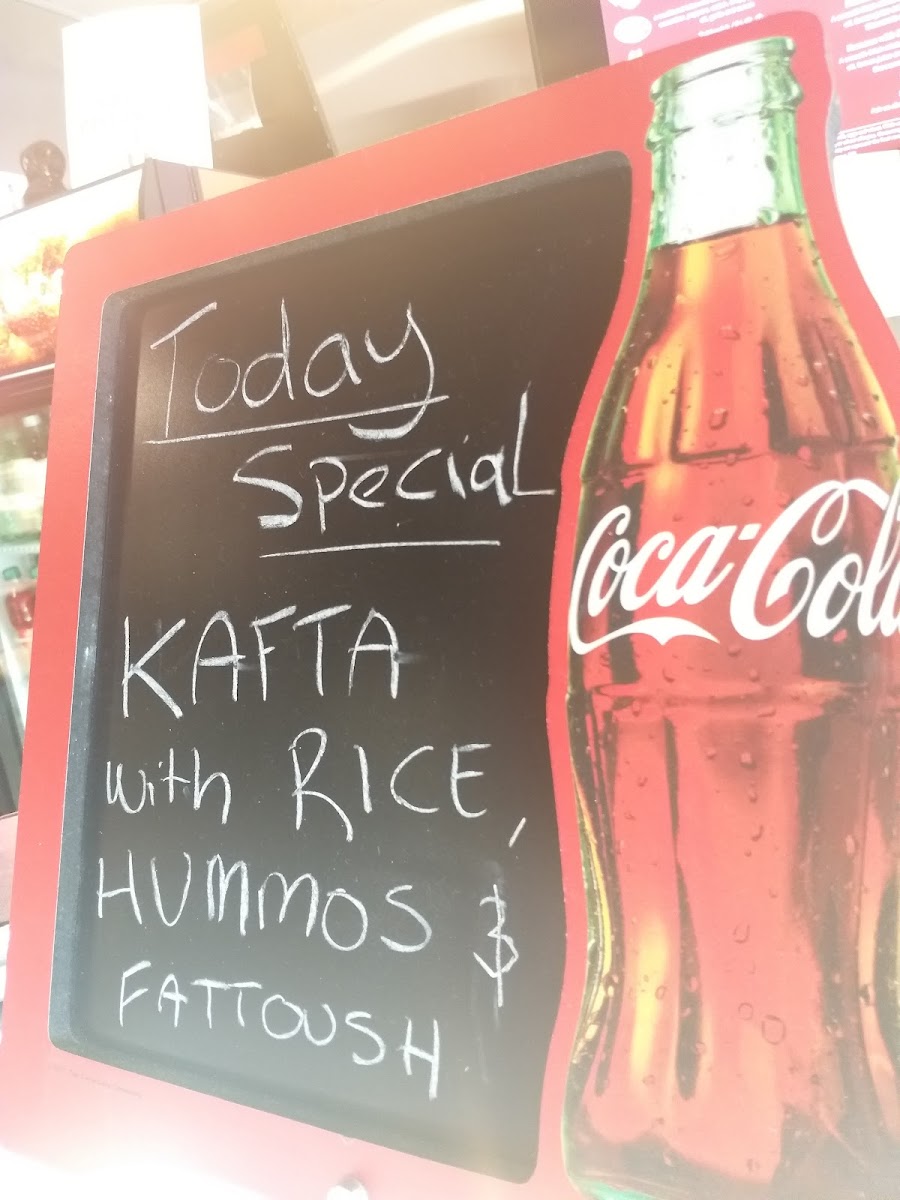 Today
Special
KAFTA
with RICE,
HUMMOS &
FATTOUSH
Coca-Cola